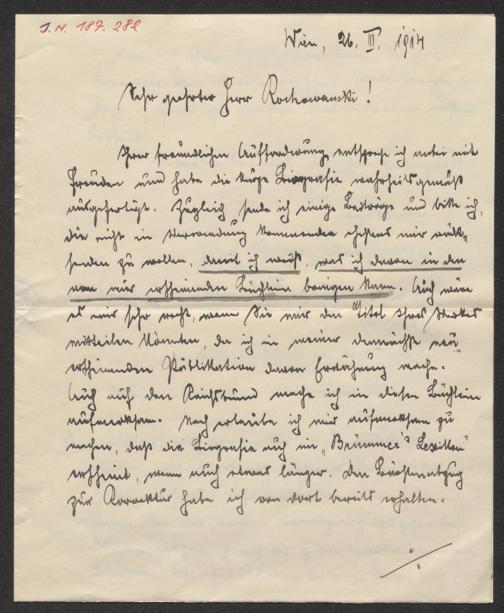 J.N. 187.282
Wien, 26. II. 1914
Sehr geehrter Herr Rochowanski!
Ihrer freundlichen Aufforderung entspreche ich anbei mit
Freuden und habe die kurze Biografie wahrheitsgemäß
ausgefertigt. Zugleich sende ich einige Beiträge und bitte ich,
die nicht in Verwendung kommenden ehestens mir rück-
senden zu wollen, damit ich weiß, was ich davon in dem
von mir erscheinenden Büchlein bringen kann. Auch wäre
es mir sehr recht, wenn Sie mir den Titel Ihres Werkes
mitteilen könnten, da ich in meiner demnächst neu
erscheinenden Publikation davon Erwähnung mache.
Auch auf den Reichsbund mache ich in diesem Büchlein
aufmerksam. Noch erlaube ich mir aufmerksam zu
machen, daß die Biografie auch im „Brümmer's Lexikon"
erscheint, wenn auch etwas länger. Den Bürstenabzug
zur Korrektur habe ich von dort bereits erhalten.